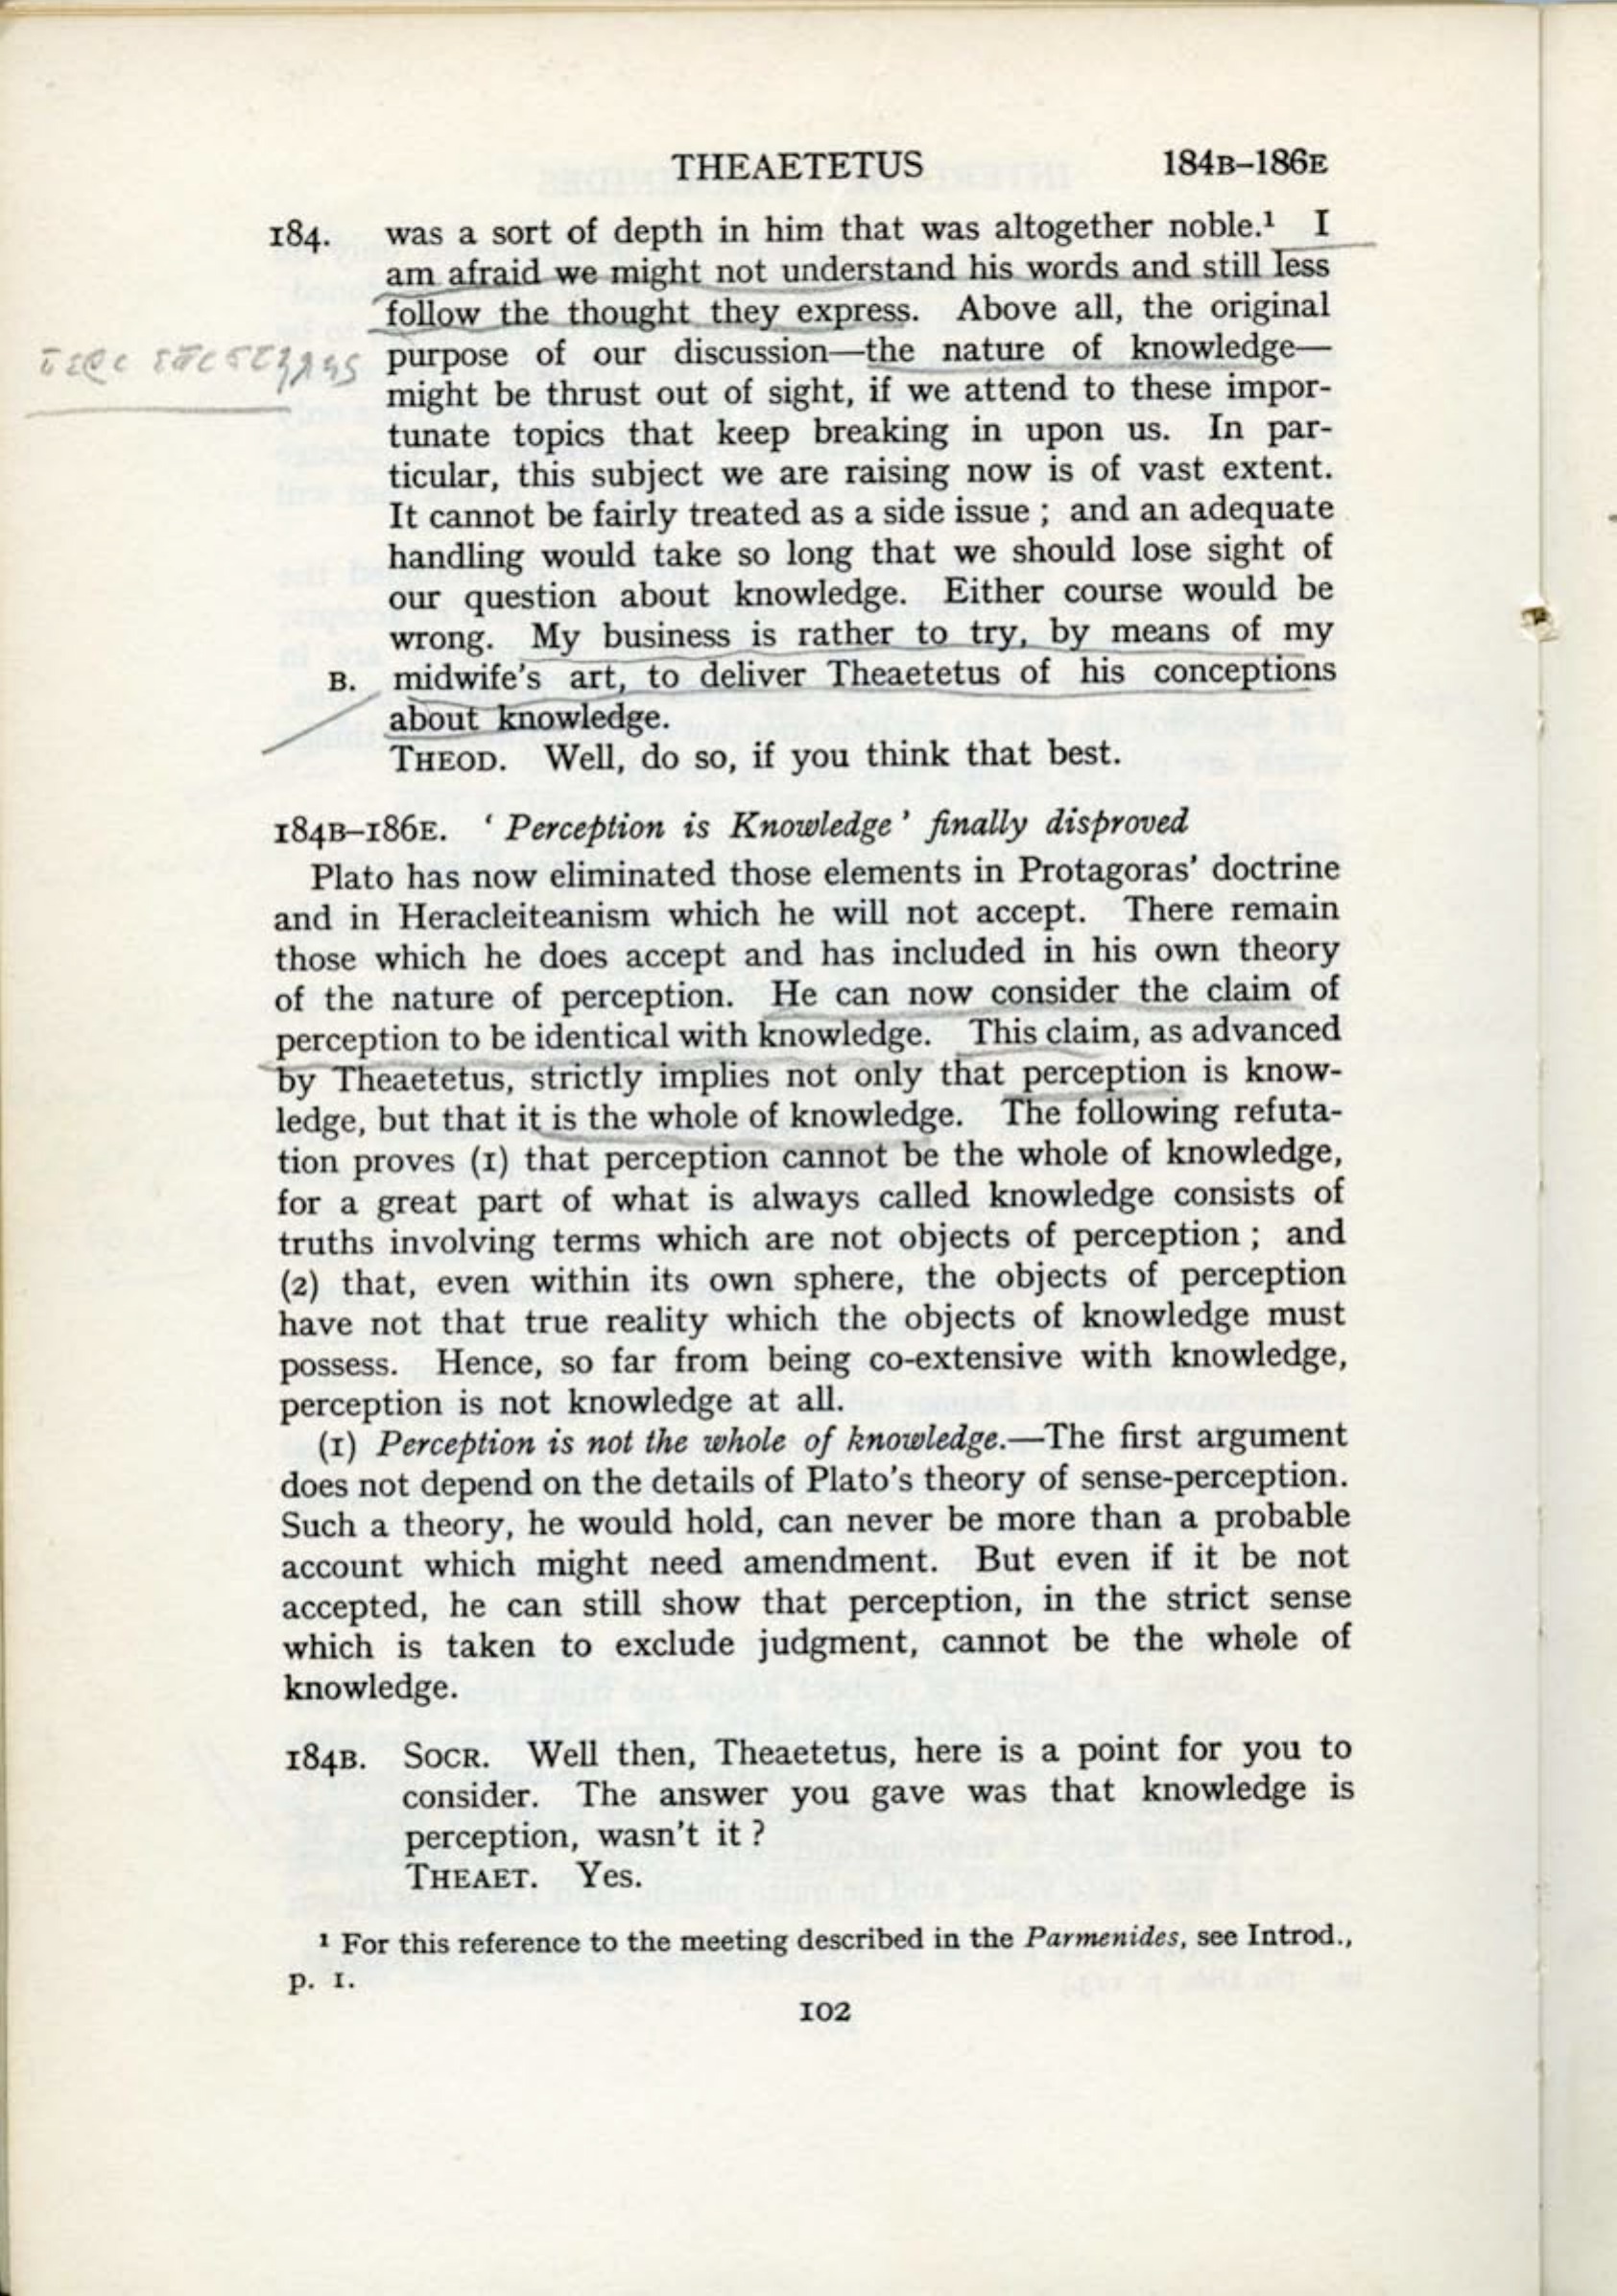 THEAETETUS 184B–186E
184. was a sort of depth in him that was altogether noble.¹ I
am afraid we might not understand his words and still less
follow the thought they express. Above all, the original
περι επιστημης purpose of our discussion—the nature of knowledge—
might be thrust out of sight, if we attend to these impor-
tunate topics that keep breaking in upon us. In par-
ticular, this subject we are raising now is of vast extent.
It cannot be fairly treated as a side issue ; and an adequate
handling would take so long that we should lose sight of
our question about knowledge. Either course would be
wrong. My business is rather to try, by means of my
B. midwife's art, to deliver Theaetetus of his conceptions
about knowledge.
THEOD. Well, do so, if you think that best.
184B–186E. ‘ Perception is Knowledge ’ finally disproved
Plato has now eliminated those elements in Protagoras’ doctrine
and in Heracleiteanism which he will not accept. There remain
those which he does accept and has included in his own theory
of the nature of perception. He can now consider the claim of
perception to be identical with knowledge. This claim, as advanced
by Theaetetus, strictly implies not only that perception is know-
ledge, but that it is the whole of knowledge. The following refuta-
tion proves (1) that perception cannot be the whole of knowledge,
for a great part of what is always called knowledge consists of
truths involving terms which are not objects of perception ; and
(2) that, even within its own sphere, the objects of perception
have not that true reality which the objects of knowledge must
possess. Hence, so far from being co-extensive with knowledge,
perception is not knowledge at all.
(1) Perception is not the whole of knowledge.—The first argument
does not depend on the details of Plato's theory of sense-perception.
Such a theory, he would hold, can never be more than a probable
account which might need amendment. But even if it be not
accepted, he can still show that perception, in the strict sense
which is taken to exclude judgment, cannot be the whole of
knowledge.
184B. SOCR. Well then, Theaetetus, here is a point for you to
consider. The answer you gave was that knowledge is
perception, wasn't it ?
THEAET. Yes.
¹ For this reference to the meeting described in the Parmenides, see Introd.,
p. 1.
102